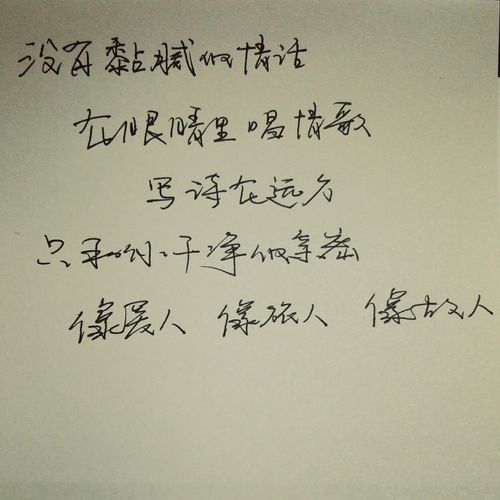 没有黏腻的情话
在眼睛里唱情歌
写诗在远方
只和你干净的拿
像爱人 像旅人 像故人